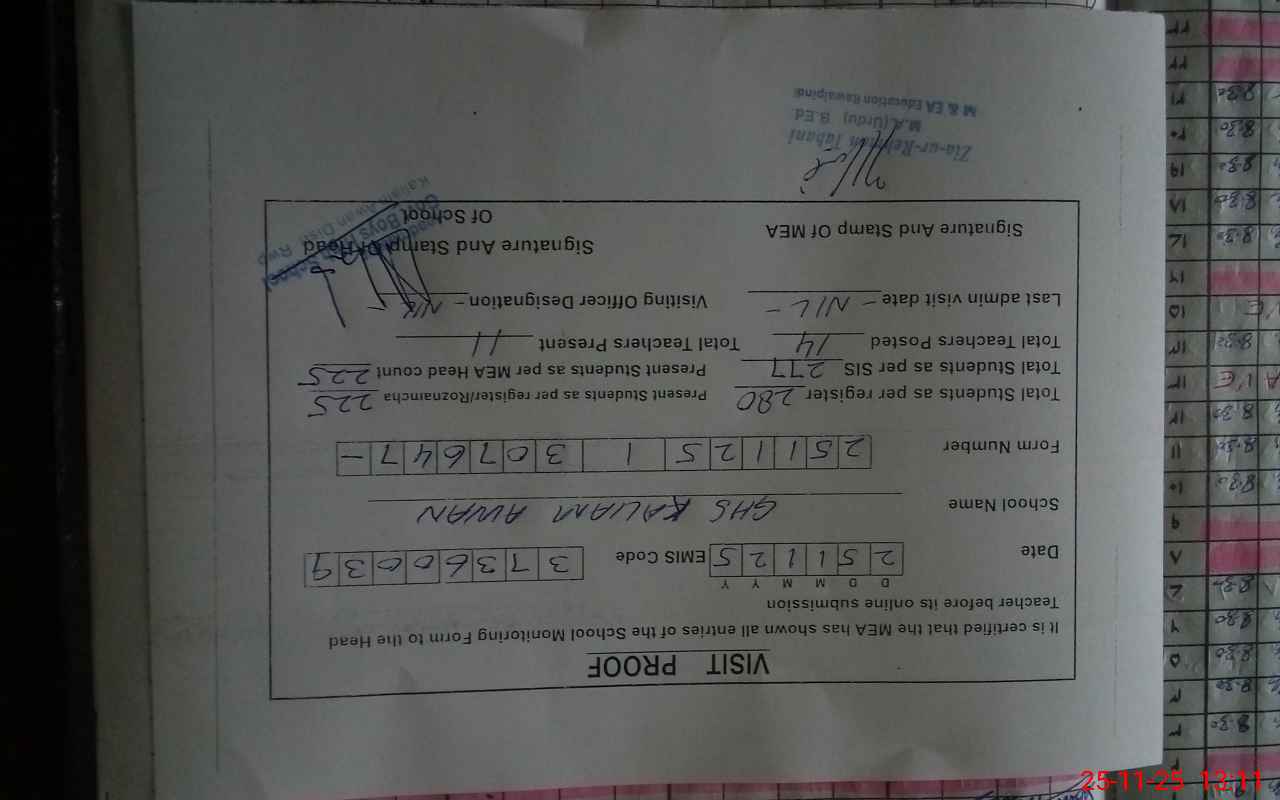 VISIT PROOF
It is certified that the MEA has shown all entries of the School Monitoring Form to the Head
Teacher before its online submission
D D M M Y Y
Date 2 5 1 1 2 5 EMIS Code 3 7 3 6 0 0 3 9
School Name GHS KALIAM AWAN
Form Number 2 5 1 1 2 5 1 3 0 7 6 4 7 -
Total Students as per register 280 Present Students as per register/Roznamcha 225
Total Students as per SIS 277 Present Students as per MEA Head count 225
Total Teachers Posted 14 Total Teachers Present 11
Last admin visit date - NIL - Visiting Officer Designation - NIL -
Signature And Stamp Of MEA Signature And Stamp Of Head
Of School
Zia-ur-Rehman Tabani
M.A.(Urdu) B.Ed
M & EA Education Rawalpindi
Govt Boys High School
Kaliam Awan Distt. Rwp
25-11-25 13:11